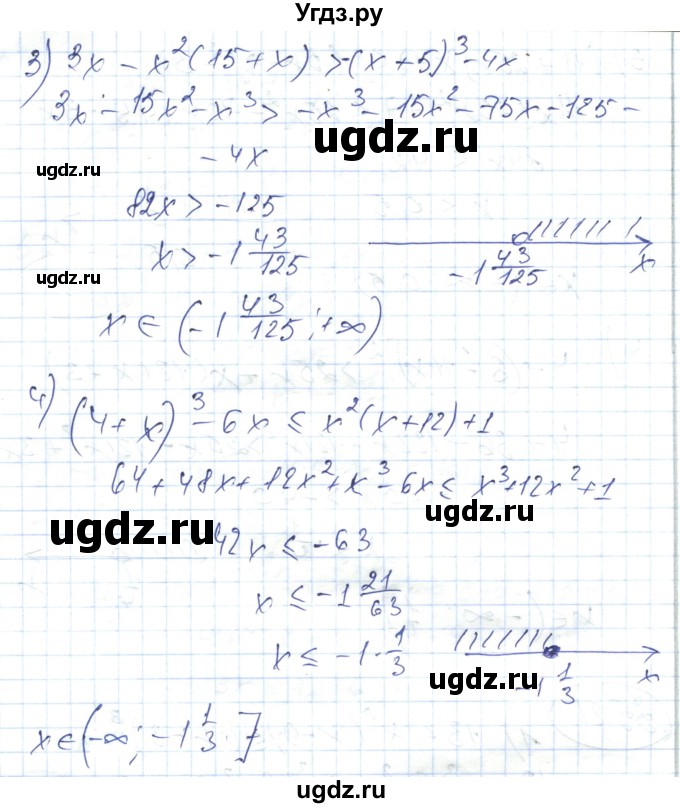 Угдз.ру
3) 3x - x²(15+x) > -(x+5)³ - 4x
3x - 15x² - x³ > -x³ - 15x² - 75x - 125 -
ugdz.ru
ugdz.ru
- 4x
82x > -125
ugdz.ru
x > -1 43/125
-1 43/125
x
x ∈ (-1 43/125; +∞)
4) (4+x)³ - 6x ≤ x²(x+12)+1
64+48x+12x²+x³-6x ≤ x³+12x²+1
ugdz.ru
ugdz.ru
42x ≤ -63
x ≤ -1 21/63
x ≤ -1 1/3
ugdz.ru
-1 1/3
x
x ∈ (-∞; -1 1/3]
ugdz.ru
ugdz.ru